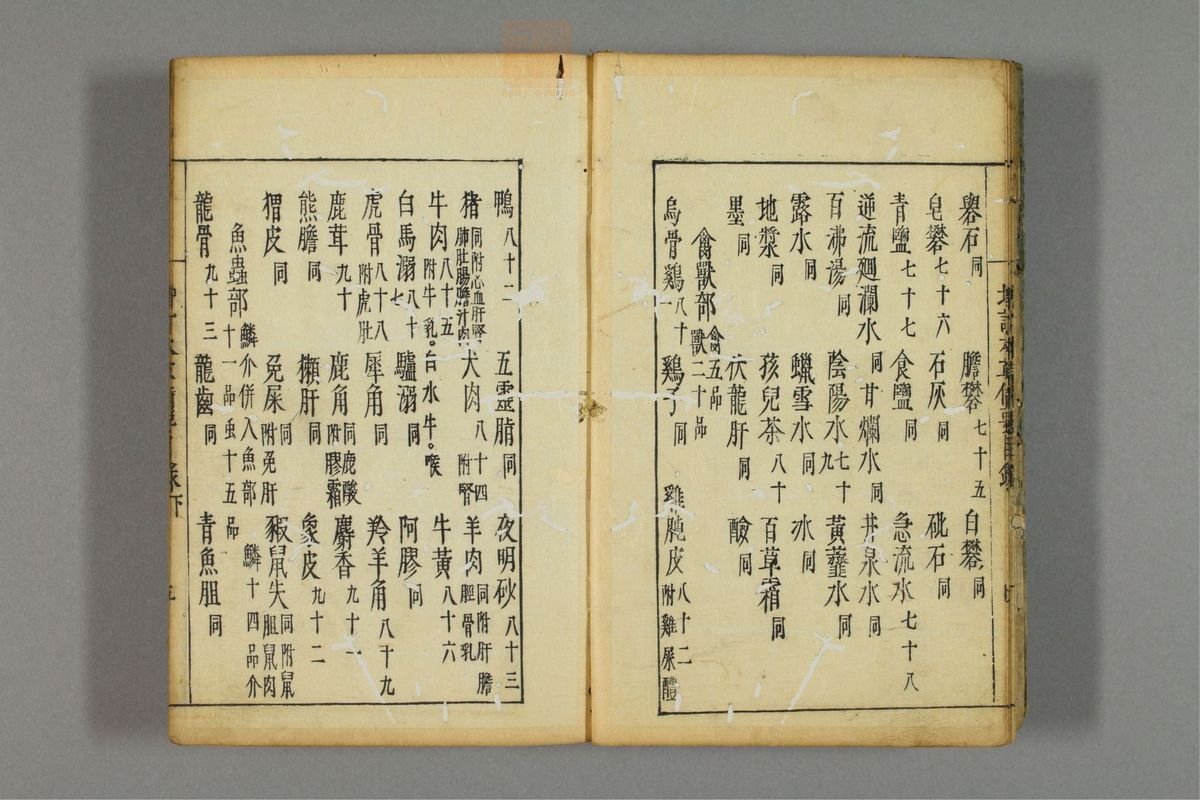 礜石同 膽礬七十五 白礬同
皂礬七十六 石灰同 砒石同
青鹽七十七 食鹽同 急流水七十八
逆流廻瀾水同 甘爛水同 井泉水同
百沸湯同 陰陽水七十九 黃虀水同
露水同 蠟雪水同 冰同
地漿同 孩兒茶八十 百草霜同
墨同 伏龍肝同 醶同
禽獸部禽五品獸二十品
烏骨鷄八十一 鷄子同 雞肫皮八十二附雞屎醴
鴨八十二 五靈脂同 夜明砂八十三
猪肉同附心血肝腎肺肚腸膽汁 犬肉八十四附腎 羊肉同附肝膽脛骨乳
牛肉八十五附牛乳。白水牛。喉 牛黃八十六
白馬溺八十七 驢溺同 阿膠同
虎骨八十八附虎肚 犀角同 羚羊角八十九
鹿茸九十 鹿角同附膠霜鹿酸 麝香九十一
熊膽同 獺肝同 象皮九十二
猬皮同 兔屎同附兔肝 豭鼠失同附鼠胆鼠肉
魚蟲部鱗介併入魚部 鱗十四品介十一品虫十五品
龍骨九十三 龍齒同 青魚胆同